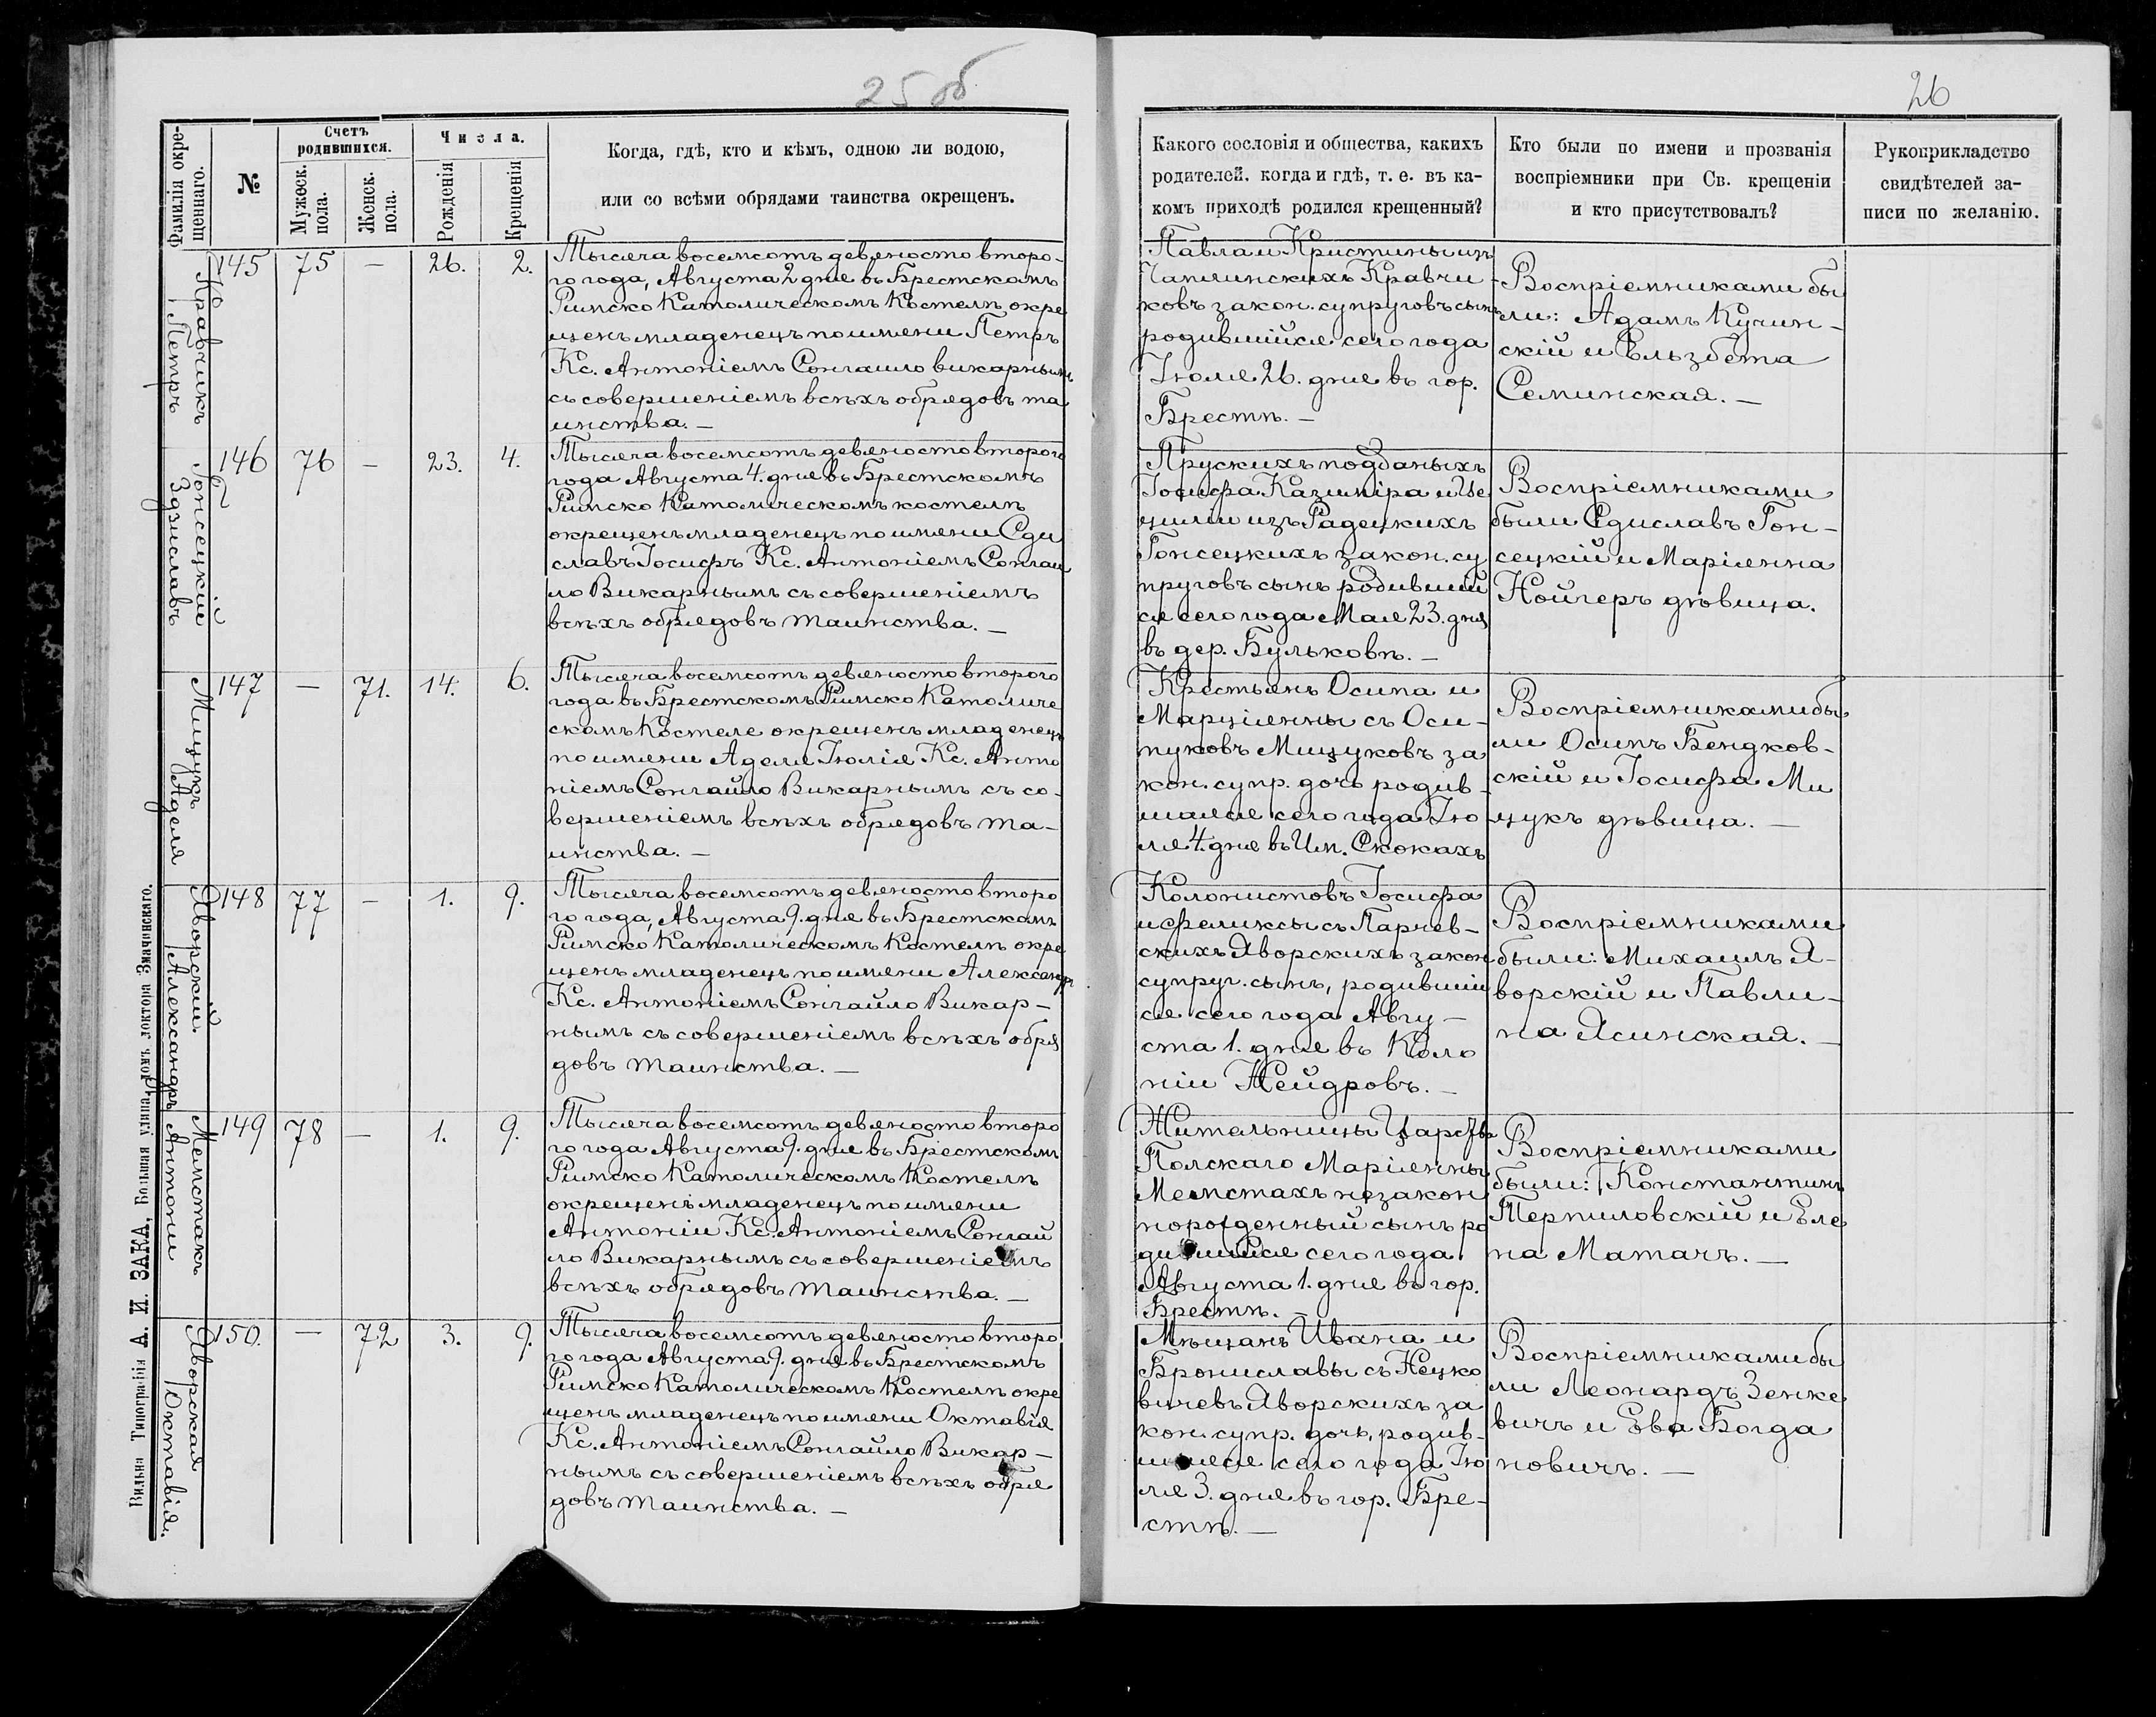 25 об
26
Фамилія окре-
щеннаго.
№
Счетъ
родившихся.
Мужеск.
пола.
Женск.
пола.
Числа.
Рожденія
Крещенія
Когда, гдѣ, кто и кѣмъ, одною ли водою,
или со всѣми обрядами таинства окрещенъ.
Какого сословія и общества, какихъ
родителей, когда и гдѣ, т. е. въ ка-
комъ приходѣ родился крещенный?
Кто были по имени и прозванія
воспріемники при Св. крещеніи
и кто присутствовалъ?
Рукоприкладство
свидѣтелей за-
писи по желанію.
Кравчикъ
Петръ
145 75 — 26. 2.
Тысяча восемсотъ девяносто второ-
го года, Августа 2 дня въ Брестскомъ
Римско Католическомъ Костелѣ окре
щенъ младенецъ по имени Петръ
Кс. Антоніемъ Сонгаило викарнымъ
съ совершеніемъ всѣхъ обрядовъ та
инства. —
Павла и Кристины изъ
Чаплинскихъ Кравчи-
ковъ закон. супруговъ сынъ
родившійся сего года
Іюля 26. дня въ гор.
Брестѣ. —
Воспріемниками бы
ли: Адамъ Кучин-
скій и Ельзбета
Семинская. —
Гонсецкій
Здзиславъ
146 76 — 23. 4.
Тысяча восемсотъ девяносто второго
года Августа 4. дня въ Брестскомъ
Римско Католическомъ костелѣ
окрещенъ младенецъ по имени Сди
славъ Іосифъ Кс. Антоніемъ Сонгаи
ло Викарнымъ съ совершеніемъ
всѣхъ обрядовъ таинства. —
Прускихъ подданыхъ
Іосифа Казиміра и Це
циліи изъ Радецкихъ
Гонсецкихъ закон. су
пруговъ сынъ родившій
ся сего года Мая 23. дня
въ дер. Бульковѣ. —
Воспріемниками
были Сдиславъ Гон-
сецкій и Маріянна
Нойгеръ дѣвица.
Мицукъ
Аделя
147 — 71. 14. 6.
Тысяча восемсотъ девяносто второго
года въ Брестскомъ Римско Католиче
скомъ Костеле окрещенъ младенецъ
по имени Аделя Юлія Кс. Анто
ніемъ Сонгайло Викарнымъ съ со-
вершеніемъ всѣхъ обрядовъ та-
инства. —
Крестьянъ Осипа и
Марціянны съ Оси-
пуковъ Мицуковъ за
кон. супр. дочь родив-
шаяся сего года Ію
ля 4. дня въ Им. Скокахъ
Воспріемниками бы
ли Осипъ Бендков-
скій и Іосифа Ми
цукъ дѣвица. —
Яворскій
Александръ
148 77 — 1. 9.
Тысяча восемсотъ девяносто второ
го года, Августа 9. дня въ Брестскомъ
Римско Католическомъ Костелѣ окре
щенъ младенецъ по имени Александръ
Кс. Антоніемъ Сонгайло Викар-
нымъ съ совершеніемъ всѣхъ обря
довъ таинства. —
Колонистовъ Іосифа
и Феликсы съ Парчев-
скихъ Яворскихъ закон
супруг. сынъ, родившій
ся сего года Авгу-
ста 1. дня въ Коло
ніи Нейдровъ. —
Воспріемниками
были: Михаилъ Я-
ворскій и Павли-
на Ясинская. —
Мемстакъ
Антони
149 78 — 1. 9.
Тысяча восемсотъ девяносто второ
го года Августа 9. дня въ Брестскомъ
Римско Католическомъ Костелѣ
окрещенъ младенецъ по имени
Антоніи Кс. Антоніемъ Сонгай
ло Викарнымъ съ совершеніемъ
всѣхъ обрядовъ таинства. —
Жительницы Царства
Полскаго Маріянны
Мемстахъ незакон
норожденный сынъ ро
дившійся сего года
Августа 1. дня въ гор.
Брестѣ. —
Воспріемниками
были: Константинъ
Терпиловскій и Еле
на Матачъ. —
Яворская
Октавія.
150. — 72 3. 9.
Тысяча восемсотъ девяносто второ
го года Августа 9. дня въ Брестскомъ
Римско Католическомъ Костелѣ окре
щенъ младенецъ по имени Октавія
Кс. Антоніемъ Сонгайло Викар-
нымъ съ совершеніемъ всѣхъ обря
довъ таинства. —
Мѣщанъ Ивана и
Брониславы съ Нецко
вичевъ Яворскихъ за
кон. супр. дочь, родив-
шаяся сего года Ію
ля 3. дня въ гор. Бре-
стѣ. —
Воспріемниками бы
ли Леонардъ Зенке
вичъ и Ева Богда
новичъ. —
Вильна Типографія А. И. ЗАКА, Большая улица, домъ доктора Змачинскаго.